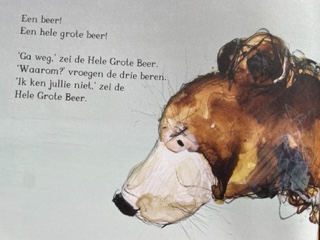 Een beer!
Een hele grote beer!
'Ga weg,' zei de Hele Grote Beer.
'Waarom?' vroegen de drie beren.
'Ik ken jullie niet,' zei de
Hele Grote Beer.